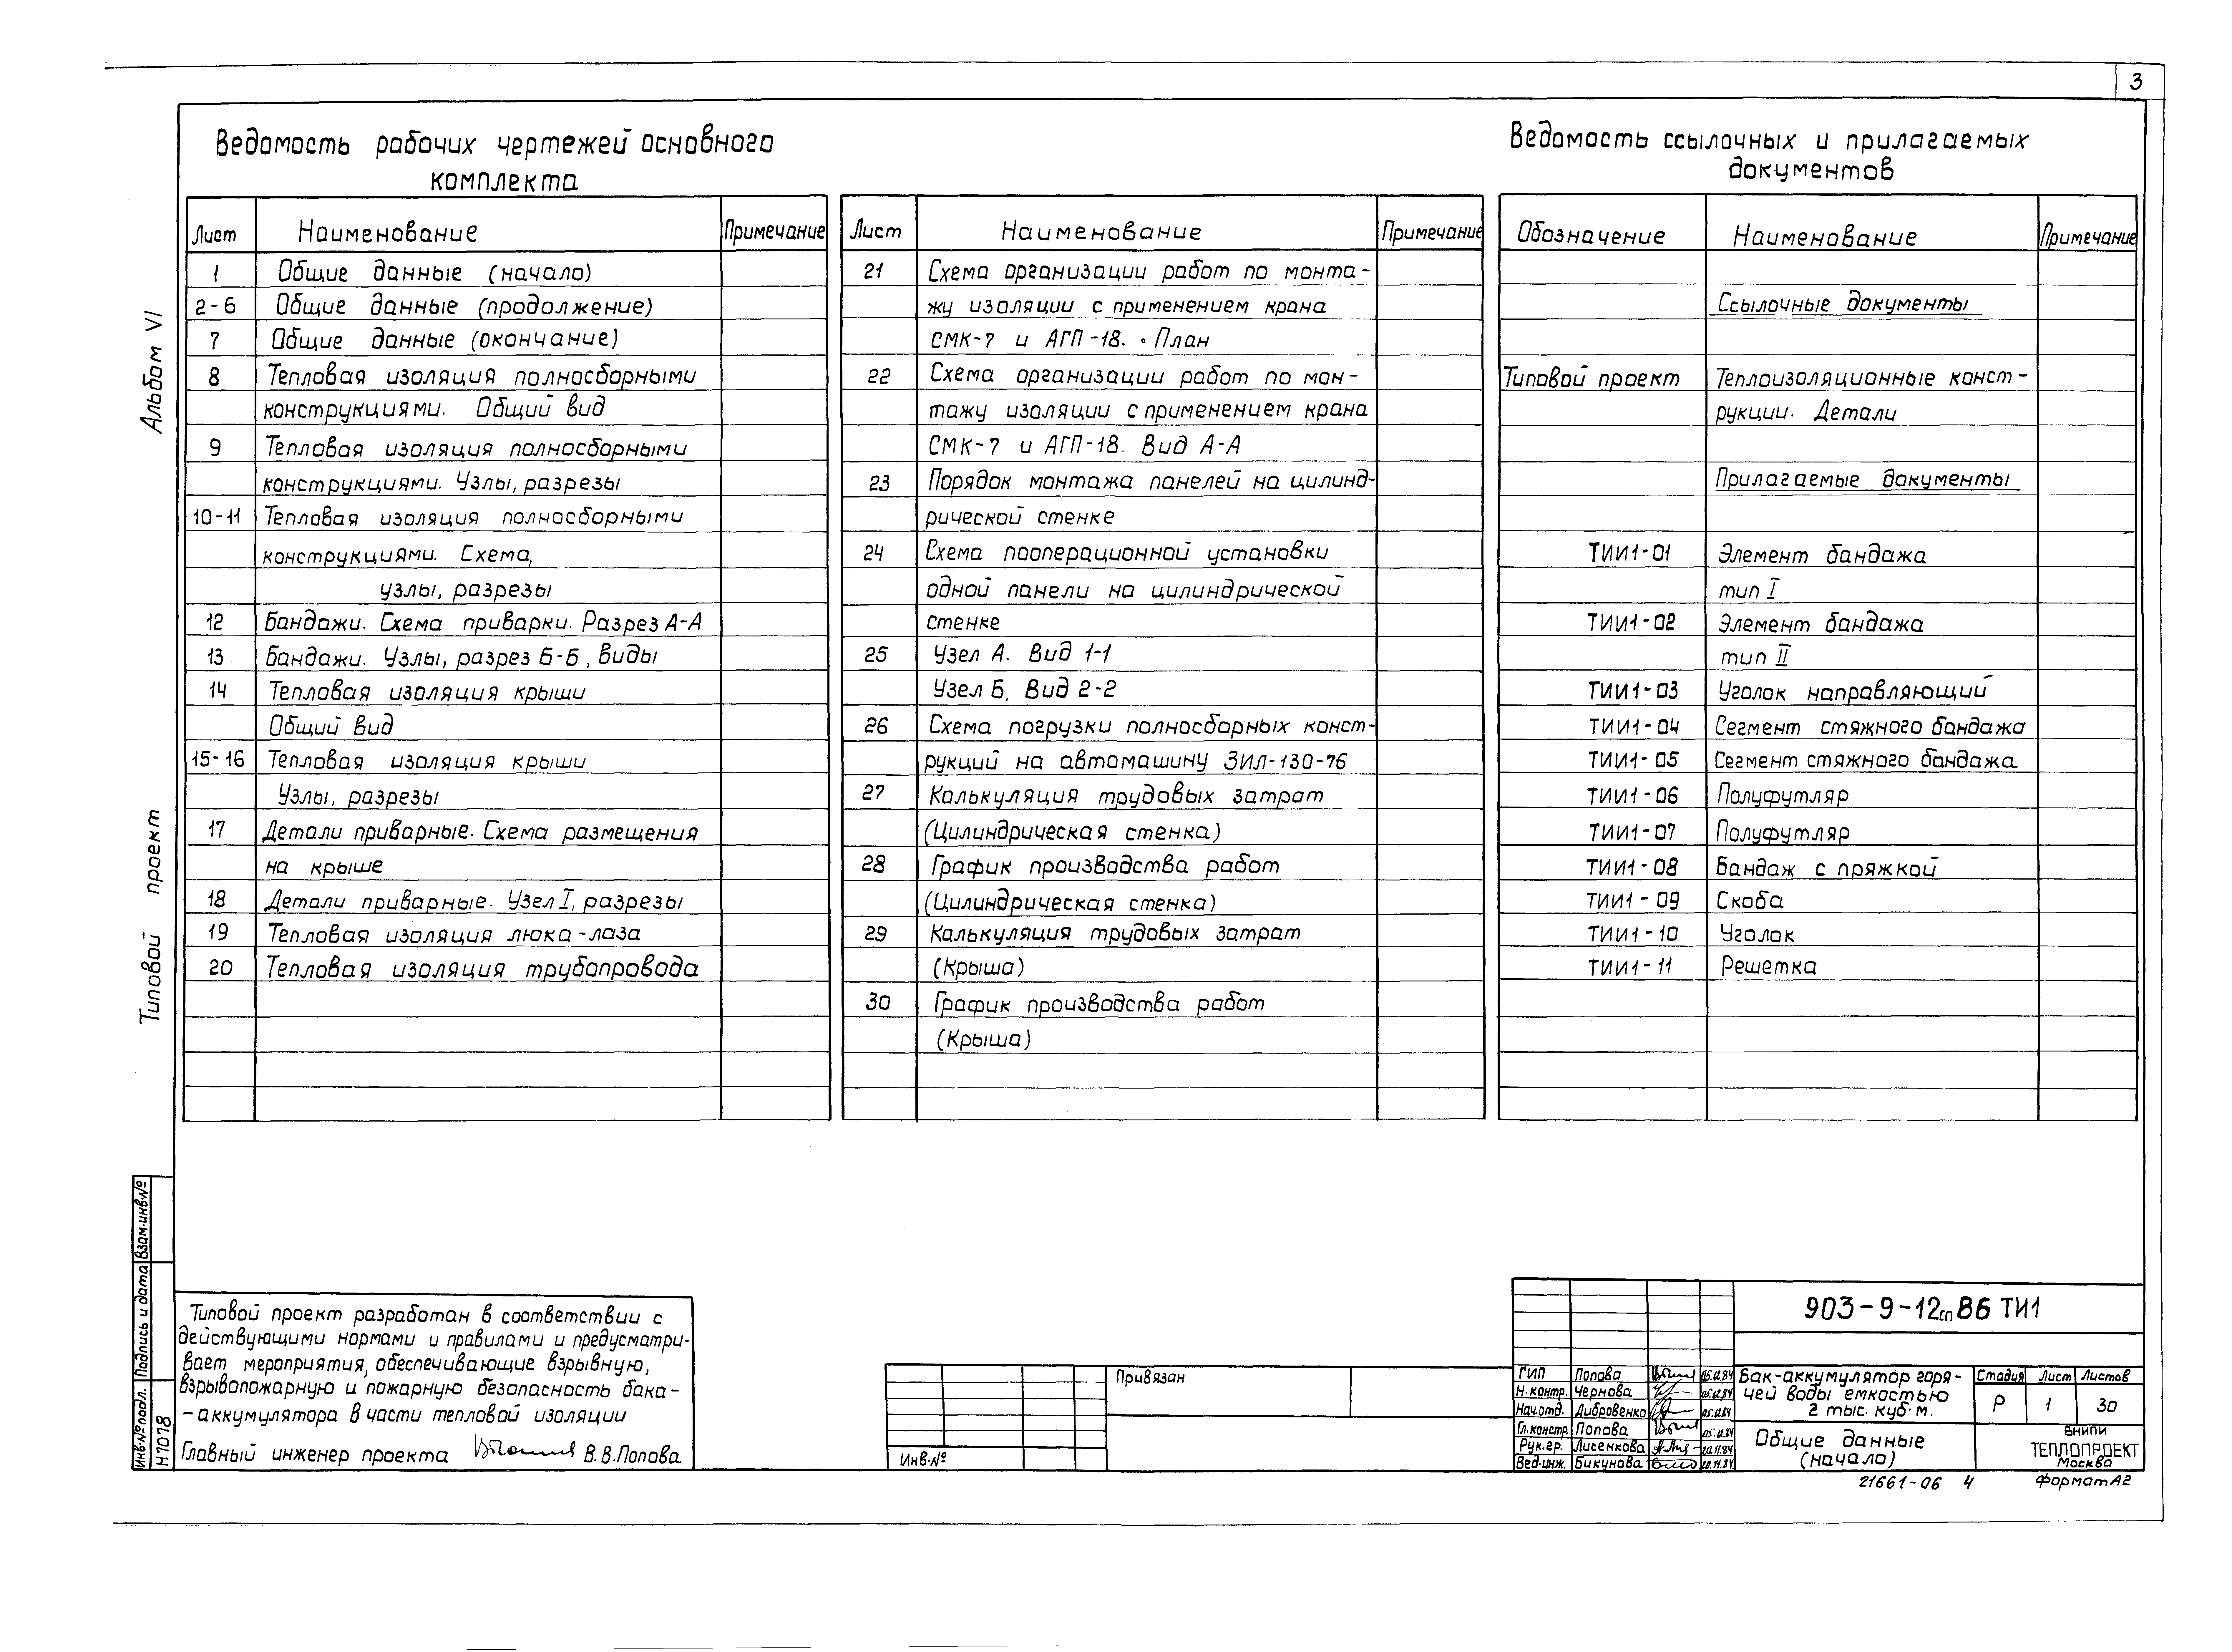 3
Ведомость рабочих чертежей основного
комплекта
Лист Наименование Примечание
1 Общие данные (начало)
2-6 Общие данные (продолжение)
7 Общие данные (окончание)
8 Тепловая изоляция полносборными
конструкциями. Общий вид
9 Тепловая изоляция полносборными
конструкциями. Узлы, разрезы
10-11 Тепловая изоляция полносборными
конструкциями. Схема,
узлы, разрезы
12 Бандажи. Схема приварки. Разрез А-А
13 Бандажи. Узлы, разрез Б-Б, Виды
14 Тепловая изоляция крыши
Общий вид
15-16 Тепловая изоляция крыши
Узлы, разрезы
17 Детали приварные. Схема размещения
на крыше
18 Детали приварные. Узел I, разрезы
19 Тепловая изоляция люка-лаза
20 Тепловая изоляция трубопровода
Лист Наименование Примечание
21 Схема организации работ по монта-
жу изоляции с применением крана
СМК-7 и АГП-18. План
22 Схема организации работ по мон-
тажу изоляции с применением крана
СМК-7 и АГП-18. Вид А-А
23 Порядок монтажа панелей на цилинд-
рической стенке
24 Схема пооперационной установки
одной панели на цилиндрической
стенке
25 Узел А. Вид 1-1
Узел Б. Вид 2-2
26 Схема погрузки полносборных конст-
рукций на автомашину ЗИЛ-130-76
27 Калькуляция трудовых затрат
(Цилиндрическая стенка)
28 График производства работ
(Цилиндрическая стенка)
29 Калькуляция трудовых затрат
(Крыша)
30 График производства работ
(Крыша)
Ведомость ссылочных и прилагаемых
документов
Обозначение Наименование Примечание
Ссылочные документы
Типовой проект Теплоизоляционные конст-
рукции. Детали
Прилагаемые документы
ТИИ1-01 Элемент бандажа
тип I
ТИИ1-02 Элемент бандажа
тип II
ТИИ1-03 Уголок направляющий
ТИИ1-04 Сегмент стяжного бандажа
ТИИ1-05 Сегмент стяжного бандажа
ТИИ1-06 Полуфутляр
ТИИ1-07 Полуфутляр
ТИИ1-08 Бандаж с пряжкой
ТИИ1-09 Скоба
ТИИ1-10 Уголок
ТИИ1-11 Решетка
Альбом VI
Типовой проект
Взам.инв.№
Подпись и дата
Инв.№ подл.
Н7078
Типовой проект разработан в соответствии с
действующими нормами и правилами и предусматри-
вает мероприятия, обеспечивающие взрывную,
взрывопожарную и пожарную безопасность бака-
-аккумулятора в части тепловой изоляции
Главный инженер проекта В.В.Попова
Привязан
Инв.№
903-9-12сп86 ТИ1
ГИП Попова 05.12.84
Н.контр. Чернова 05.12.84
Нач.отд. Дибровенко 05.12.84
Гл.констр. Попова 05.12.84
Рук.гр. Лисенкова 20.11.84
Вед.инж. Бикунова 20.11.84
Бак-аккумулятор горя-
чей воды емкостью
2 тыс. куб. м.
Общие данные
(начало)
Стадия Лист Листов
Р 1 30
ВНИПИ
ТЕПЛОПРОЕКТ
Москва
21661-06 4
Формат А2